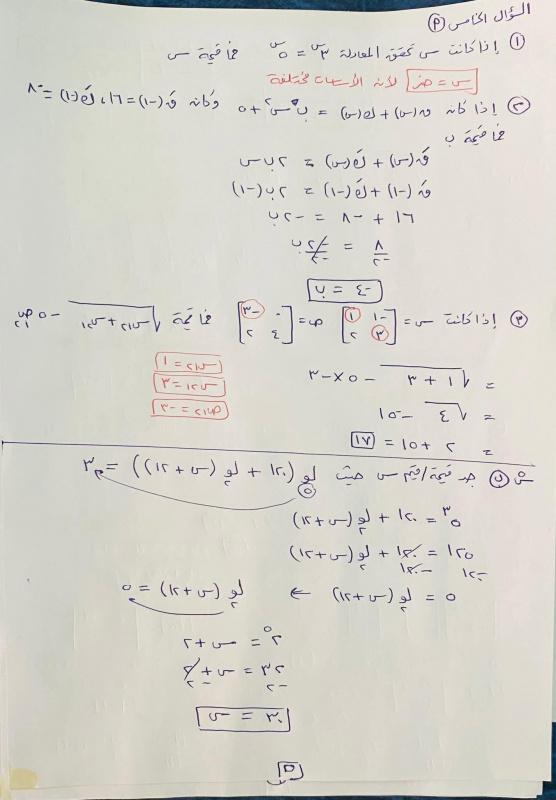 السؤال الخامس (P)
① إذا كانت س تحقق المعادلة ٣^س = ٥^س فما قيمة س
س = صفر لأن الأساسات مختلفة
② إذا كان ق(س) + ك(س) = ب س² + ٥ وكان قَ(-١) = ١٦ ، كَ(-١) = -٨
فما قيمة ب
قَ(س) + كَ(س) = ٢ب س
قَ(-١) + كَ(-١) = ٢ب(-١)
١٦ + -٨ = -٢ب
٨/-٢ = -٢ب/-٢
-٤ = ب
③ إذا كانت س = [-١ ١ ؛ ٣ ٢] ص = [٠ -٣ ؛ ٤ ٢] فما قيمة √(س١٢ + س٢١) - ٥ص١٢
س١٢ = ١
= √(١ + ٣) - ٥ × -٣
س٢١ = ٣
= √٤ - -١٥
ص١٢ = -٣
= ٢ + ١٥ = ١٧
جد قيمة/قيم س حيث لو٥(١٢٠ + لو٢(س+٢)) = ٣
٥^٣ = ١٢٠ + لو٢(س+٢)
١٢٥ = ١٢٠ + لو٢(س+٢)
-١٢٠ -١٢٠
٥ = لو٢(س+٢) ← لو٢(س+٢) = ٥
٢^٥ = س+٢
٣٢ = س + ٢
-٢ -٢
٣٠ = س